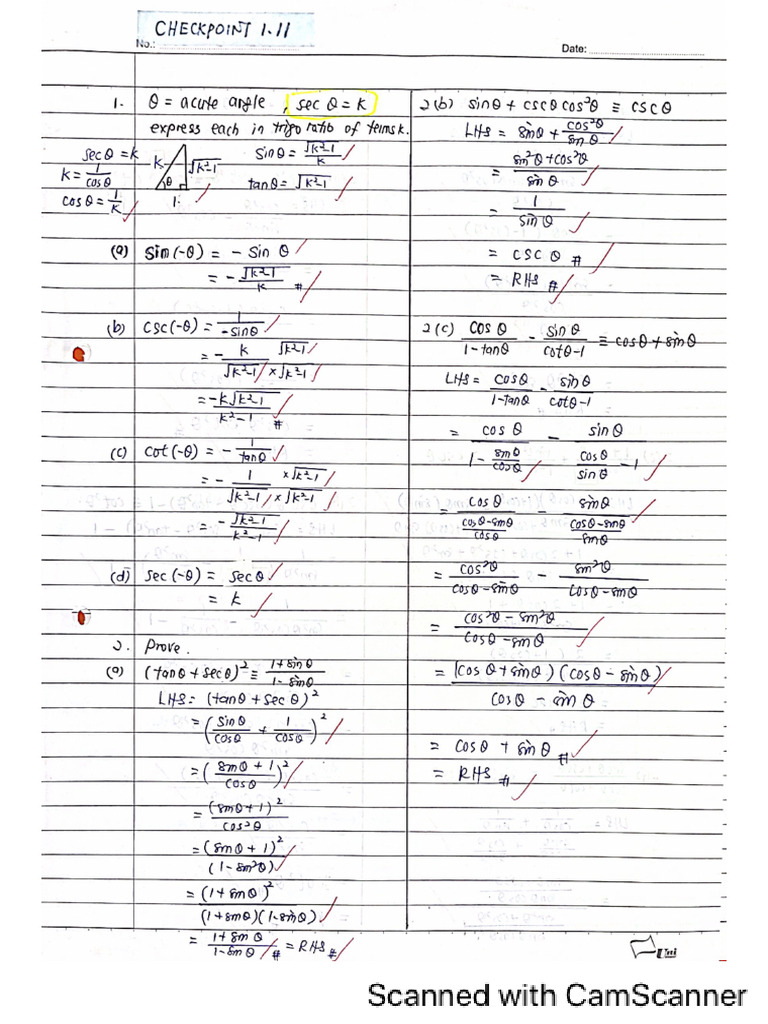 CHECKPOINT 1.11
No.:
Date:
1. θ = acute angle, sec θ = k
express each in trigo ratio of terms k.
sec θ = k
k = 1/cosθ
cosθ = 1/k
k
√k²-1
θ
1
sinθ = √k²-1/k
tanθ = √k²-1
(a) sin(-θ) = - sin θ
= - √k²-1/k #
(b) csc(-θ) = 1/-sinθ
= - k/√k²-1 × √k²-1/√k²-1
= -k√k²-1/k²-1 #
(c) cot(-θ) = - 1/tanθ
= - 1/√k²-1 ×√k²-1/×√k²-1
= - √k²-1/k²-1
(d) sec(-θ) = secθ
= k
2. Prove.
(a) (tanθ + secθ)² ≡ 1+sinθ/1-sinθ
LHS = (tanθ + sec θ)²
= (sinθ/cosθ + 1/cosθ)²
= (sinθ + 1/cosθ)²
= (sinθ+1)²/cos²θ
= (sinθ + 1)²/(1-sin²θ)
= (1+sinθ)²/(1+sinθ)(1-sinθ)
= 1+sinθ/1-sinθ # = RHS #
2(b) sinθ + cscθ cos²θ ≡ cscθ
LHS = sinθ + cos²θ/sinθ
= sin²θ + cos²θ/sinθ
= 1/sinθ
= csc θ #
= RHS #
2(c) cosθ/1-tanθ - sinθ/cotθ-1 ≡ cosθ + sinθ
LHS = cosθ/1-tanθ - sinθ/cotθ-1
= cosθ/1 - sinθ/cosθ - sinθ/cosθ/sinθ - 1
= cosθ/cosθ-sinθ/cosθ - sinθ/cosθ-sinθ/sinθ
= cos²θ/cosθ-sinθ - sin²θ/cosθ-sinθ
= cos²θ - sin²θ/cosθ-sinθ
= (cosθ + sinθ)(cosθ - sinθ)/cosθ - sinθ
= cosθ + sinθ #
= RHS #
Scanned with CamScanner